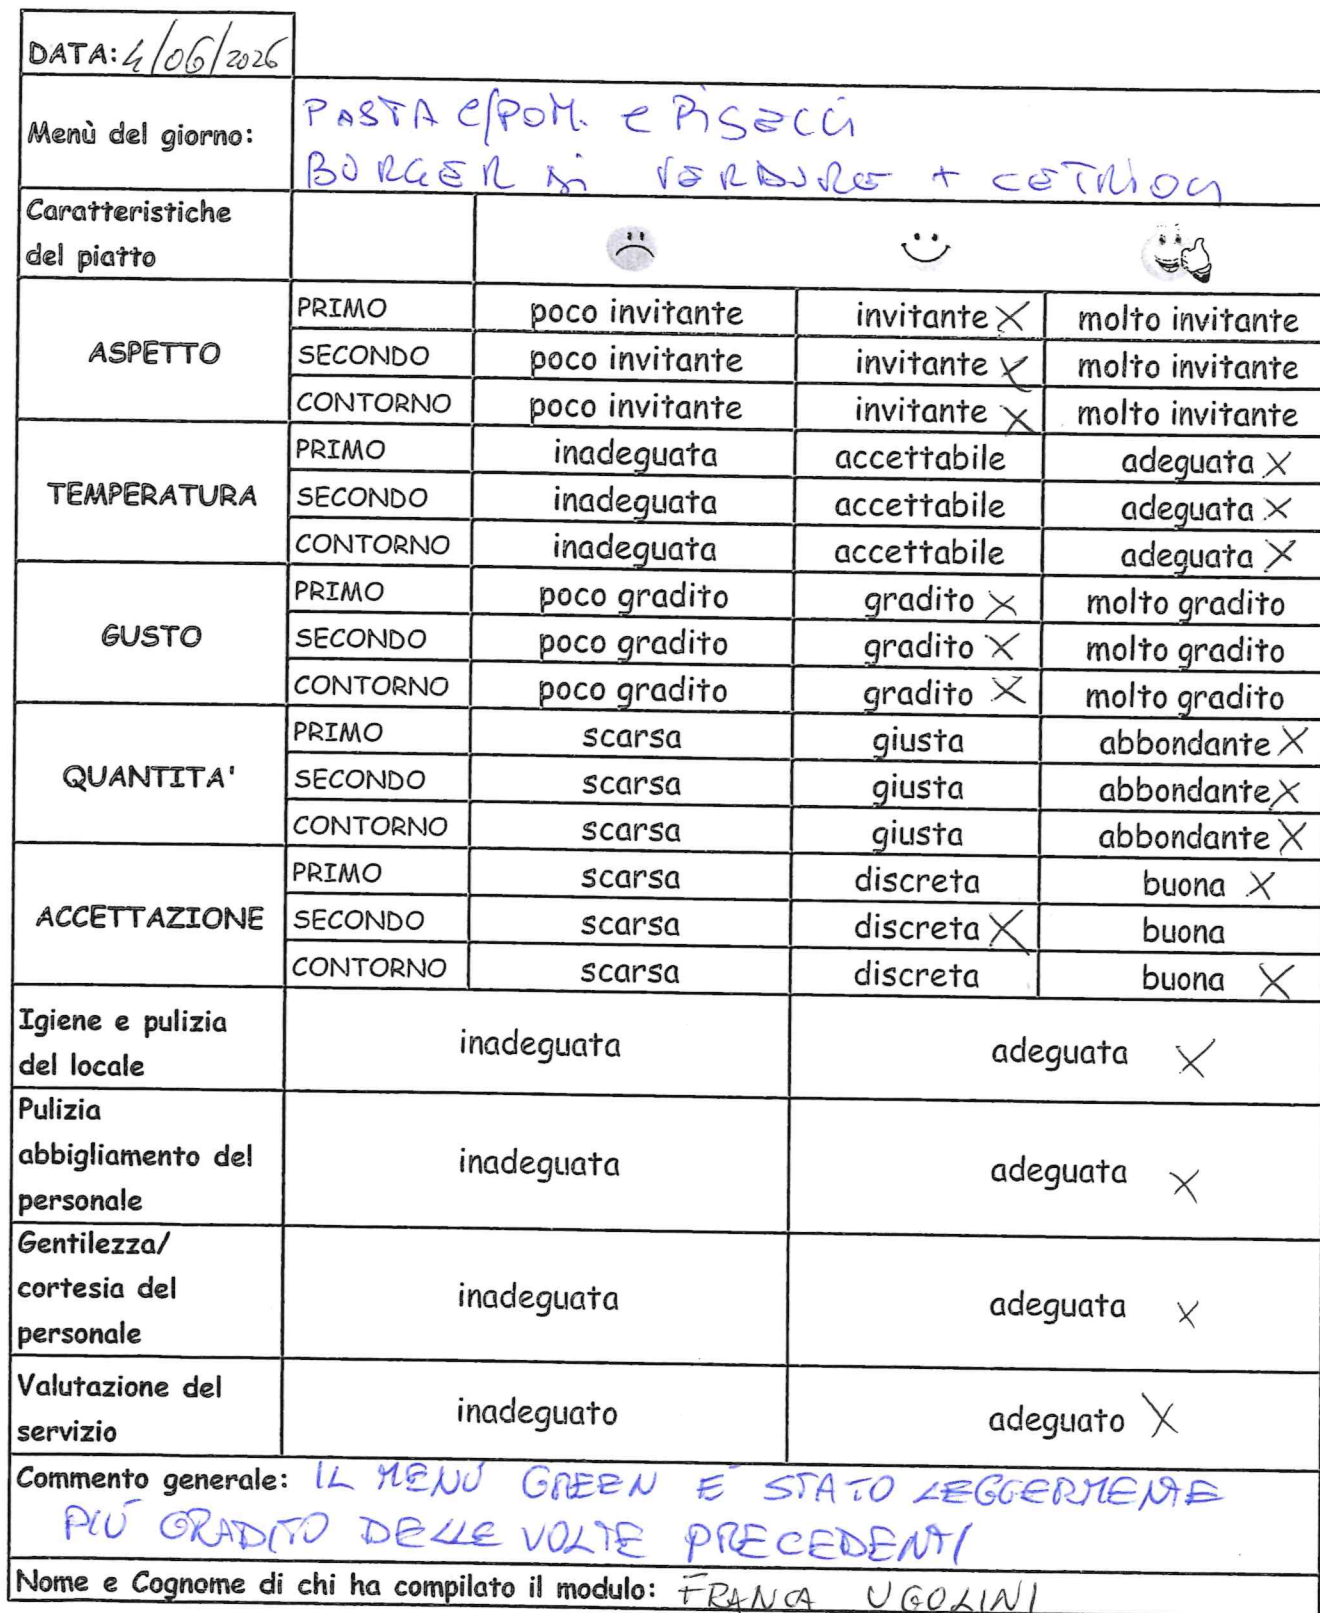 DATA: 4/06/2026
Menù del giorno: PASTA C/POM. e PISELLI
BURGER DI VERDURE + CETRIOLI
Caratteristiche
del piatto
ASPETTO
PRIMO poco invitante invitante X molto invitante
SECONDO poco invitante invitante X molto invitante
CONTORNO poco invitante invitante X molto invitante
TEMPERATURA
PRIMO inadeguata accettabile adeguata X
SECONDO inadeguata accettabile adeguata X
CONTORNO inadeguata accettabile adeguata X
GUSTO
PRIMO poco gradito gradito X molto gradito
SECONDO poco gradito gradito X molto gradito
CONTORNO poco gradito gradito X molto gradito
QUANTITA'
PRIMO scarsa giusta abbondante X
SECONDO scarsa giusta abbondante X
CONTORNO scarsa giusta abbondante X
ACCETTAZIONE
PRIMO scarsa discreta buona X
SECONDO scarsa discreta X buona
CONTORNO scarsa discreta buona X
Igiene e pulizia
del locale
inadeguata adeguata X
Pulizia
abbigliamento del
personale
inadeguata adeguata X
Gentilezza/
cortesia del
personale
inadeguata adeguata X
Valutazione del
servizio
inadeguato adeguato X
Commento generale: IL MENÙ GREEN E' STATO LEGGERMENTE
PIÙ GRADITO DELLE VOLTE PRECEDENTI
Nome e Cognome di chi ha compilato il modulo: FRANCA UGOLINI